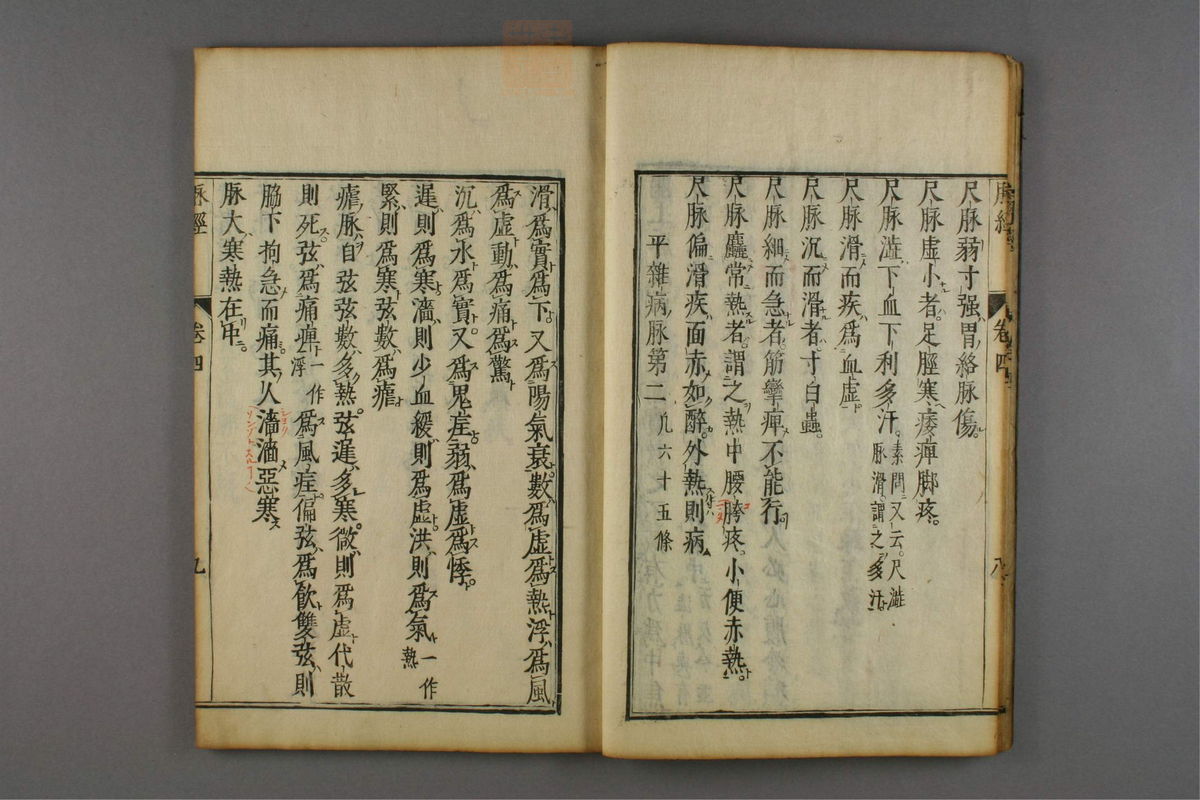 脉經 卷四 八
尺脉弱寸强胃絡脉傷
尺脉虛小者足脛寒痿痺脚疼
尺脉澁下血下利多汗素問又云尺澁脉滑謂之多汗
尺脉滑而疾爲血虛
尺脉沉而滑者寸白蟲
尺脉細而急者筋攣痺不能行
尺脉麤常熱者謂之熱中腰胯疼小便赤熱
尺脉偏滑疾面赤如醉外熱則病
平雜病脉第二凡六十五條
滑爲實爲下又爲陽氣衰數爲虛爲熱浮爲風
爲虛動爲痛爲驚
沉爲水爲實又爲鬼疰弱爲虛爲悸
遲則爲寒濇則少血緩則爲虛洪則爲氣一作熱
緊則爲寒弦數爲瘧
瘧脉自弦弦數多熱弦遲多寒微則爲虛代散
則死弦爲痛痺一作浮爲風疰偏弦爲飮雙弦則
脇下拘急而痛其人濇濇惡寒
脉大寒熱在中
脉經 卷四 九